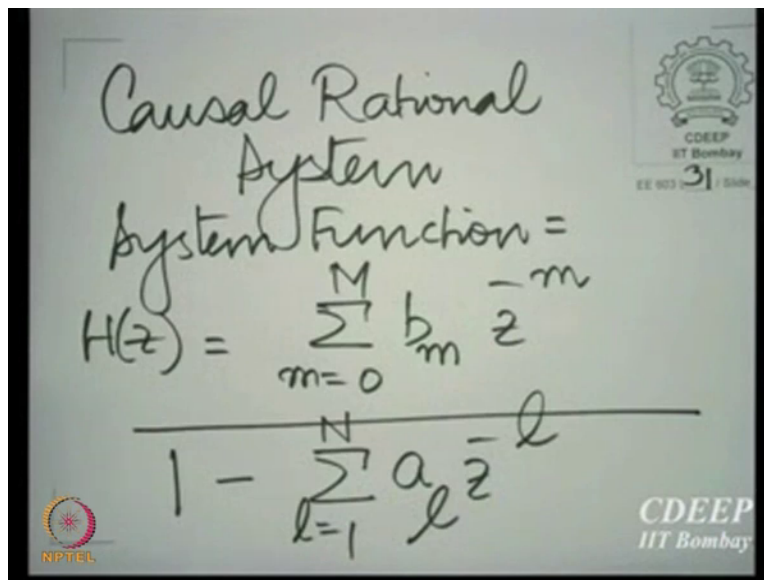 Causal Rational
System
System Function =
H(z) = M Σ m=0 b_m z^-m
1 - N Σ l=1 a_l z^-l
CDEEP
IIT Bombay
EE 603 31 / Slide
NPTEL
CDEEP
IIT Bombay